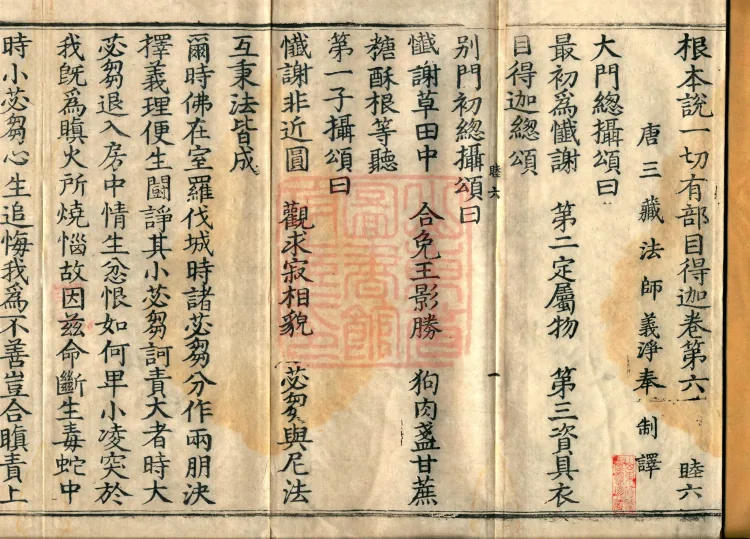 根本說一切有部目得迦卷第六 睦六
唐三藏法師義淨奉 制譯
大門總攝頌曰
最初為懺謝 第二定屬物 第三資具衣
目得迦總頌
睦六 一
别門初總攝頌曰
懺謝草田中 合免王影勝 狗肉盞甘蔗
糖酥根等聽
第一子攝頌曰
懺謝非近圓 觀求寂相貌 苾芻與尼法
互秉法皆成
爾時佛在室羅伐城時諸苾芻分作兩朋決
擇義理便生鬪諍其小苾芻訶責大者時大
苾芻退入房中情生忿恨如何卑小凌突於
我既為瞋火所燒惱故因茲命斷生毒蛇中
時小苾芻心生追悔我為不善豈合瞋責上